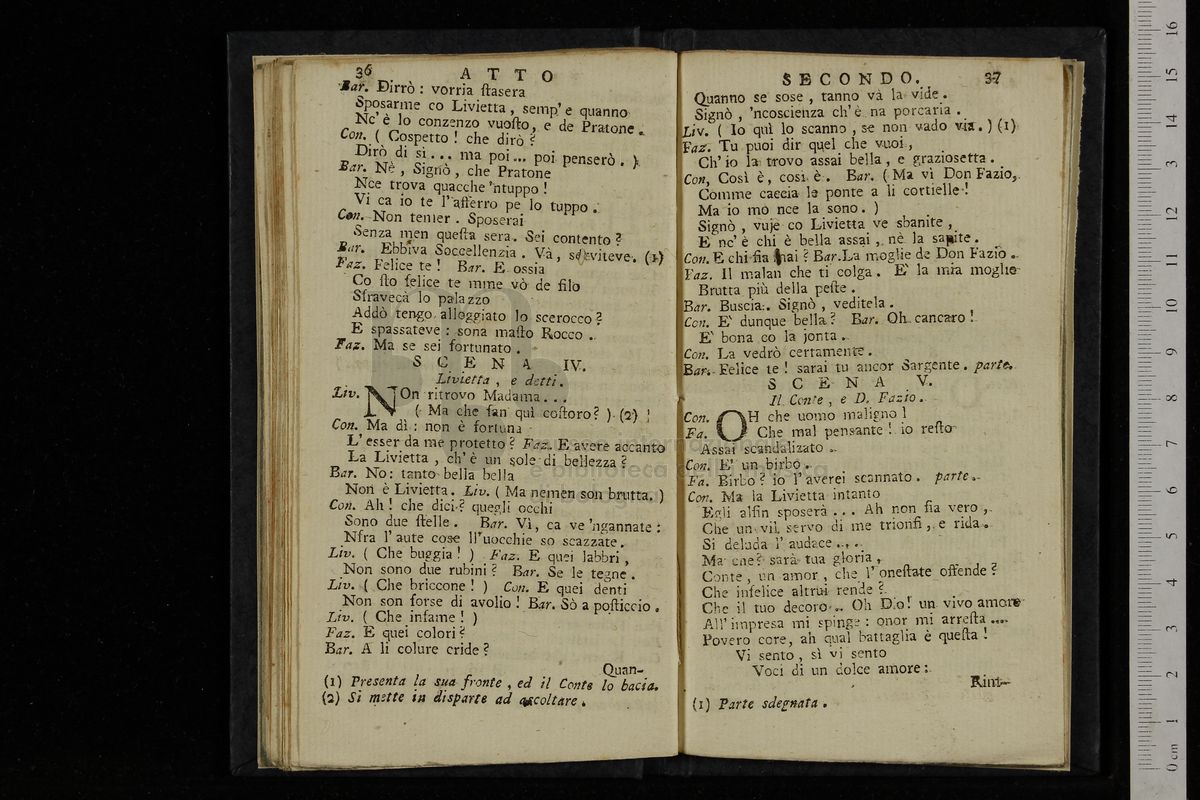 36 ATTO
Bar. Dirrò : vorria ſtasera
Sposarme co Livietta , semp' e quanno
Nc' è lo conzenzo vuoſto, e de Pratone.
Con. ( Cospetto ! che dirò ?
Dirò di sì ... ma poi ... poi penserò . )
Bar. Nè , Signò , che Pratone
Nce trova quacche 'ntuppo !
Vi ca io te l' afferro pe lo tuppo .
Con. Non temer . Sposerai
Senza men queſta sera. Sei contento ?
Bar. Ebbiva Soccellenzia . Va, s viteve. (1)
Faz. Felice te ! Bar. E ossia
Co ſto felice te mme vò de filo
Sfravecà lo palazzo
Addò tengo alloggiato lo scerocco ?
E spassateve : sona maſto Rocco .
Faz. Ma se sei fortunato .
SCENA IV.
Livietta , e detti .
Liv. NOn ritrovo Madama ...
( Ma che fan quì coſtoro ? ) (2)
Con. Ma dì : non è fortuna
L' esser da me protetto ? Faz. E avere accanto
La Livietta , ch' è un sole di bellezza ?
Bar. No : tanto bella bella
Non è Livietta . Liv. ( Ma nemen son brutta. )
Con. Ah ! che dici ? quegli occhi
Sono due ſtelle . Bar. Vì, ca ve 'ngannate :
Nfra l' aute cose ll'uocchie so scazzate.
Liv. ( Che buggia ! ) Faz. E quei labbri ,
Non sono due rubini ? Bar. Se le tegne .
Liv. ( Che briccone ! ) Con. E quei denti
Non son forse di avolio ! Bar. Sò a poſticcio .
Liv. ( Che infame ! )
Faz. E quei colori ?
Bar. A li colure cride ?
Quan-
(1) Presenta la sua fronte , ed il Conte lo bacia.
(2) Si mette in disparte ad ascoltare .
SECONDO. 37
Quanno se sose , tanno và la vide .
Signò , 'ncoscienza ch' è na porcaria .
Liv. ( Io quì lo scanno , se non vado via. ) (1)
Faz. Tu puoi dir quel che vuoi ,
Ch' io la trovo assai bella , e graziosetta .
Con, Così è, così è . Bar. ( Ma vì Don Fazio,
Comme caccia le ponte a li cortielle !
Ma io mo nce la sono . )
Signò , vuje co Livietta ve sbanite ,
E nc' è chi è bella assai , nè la sapite .
Con. E chi fia mai ? Bar. La moglie de Don Fazio .
Faz. Il malan che ti colga . E' la mia moglie
Brutta più della peſte .
Bar. Buscìa . Signò , veditela .
Con. E' dunque bella ? Bar. Oh cancaro !
E' bona co la jonta .
Con. La vedrò certamente .
Bar. Felice te ! sarai tu ancor Sargente . parte.
SCENA V.
Il Conte , e D. Fazio .
Con. OH che uomo maligno !
Fa. Che mal pensante ! io reſto
Assai scandalizato .
Con. E' un birbo .
Fa. Birbo ? io l' averei scannato . parte .
Con. Ma la Livietta intanto
Egli alfin sposerà ... Ah non fia vero ,
Che un vil servo di me trionfi , e rida .
Si deluda l' audace ...
Ma che ? sarà tua gloria ,
Conte , un amor , che l' oneſtate offende ?
Che infelice altrui rende ?
Che il tuo decoro .. Oh Dio! un vivo amore
All' impresa mi spinge : onor mi arreſta ....
Povero core, ah qual battaglia è queſta !
Vi sento , sì vi sento
Voci di un dolce amore :
Rim-
(1) Parte sdegnata .